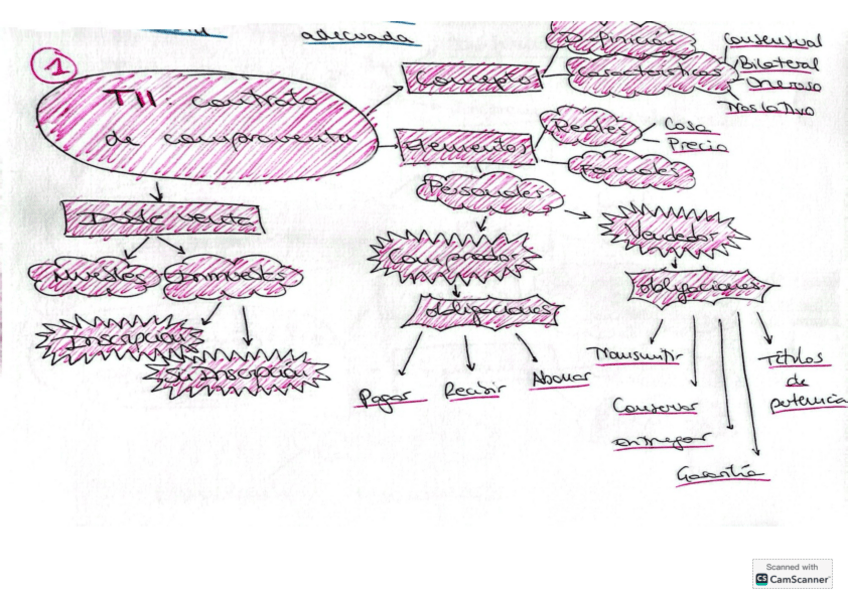 adecuada
1
T11: contrato
de compraventa
Concepto
Definición
Características
Consensual
Bilateral
Oneroso
Traslativo
Elementos
Reales
Cosa
Precio
Formales
Personales
Comprador
Obligaciones
Pagar
Recibir
Abonar
Vendedor
Obligaciones
Transmitir
Conservar
entregar
Garantía
Títulos
de
pertenencia
Doble venta
Muebles
Inmuebles
Inscripción
Sin Inscripción
Scanned with
CS CamScanner